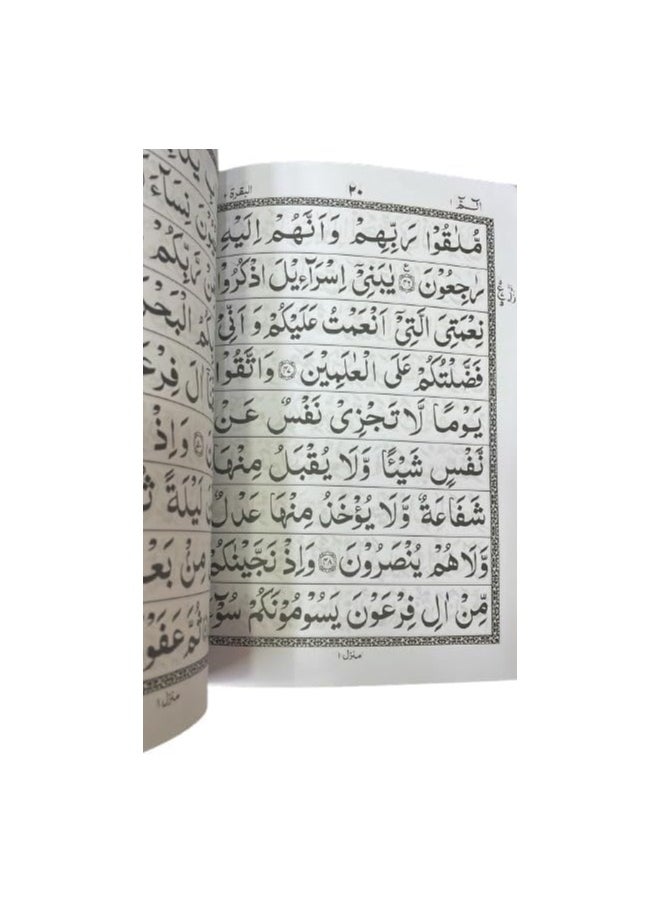 الٓمّٓ ١
٢٠
البقرة ٢
مُّلٰقُوْا رَبِّهِمْ وَاَنَّهُمْ اِلَيْهِ
رٰجِعُوْنَ ۝٤٦ يٰبَنِىْٓ اِسْرَآءِيْلَ اذْكُرُوْا
نِعْمَتِىَ الَّتِىْٓ اَنْعَمْتُ عَلَيْكُمْ وَ اَنِّىْ
فَضَّلْتُكُمْ عَلَى الْعٰلَمِيْنَ ۝٤٧ وَاتَّقُوْا
يَوْمًا لَّا تَجْزِىْ نَفْسٌ عَنْ
نَّفْسٍ شَيْئًا وَّلَا يُقْبَلُ مِنْهَا
شَفَاعَةٌ وَّلَا يُؤْخَذُ مِنْهَا عَدْلٌ
وَّلَا هُمْ يُنْصَرُوْنَ ۝٤٨ وَاِذْ نَجَّيْنٰكُمْ
مِّنْ اٰلِ فِرْعَوْنَ يَسُوْمُوْنَكُمْ سُوْٓءَ
منزل ١
رَّبِّكُمْ
الْبَحْرَ
وَاِذْ
لَيْلَةً
مِنْ
ثُمَّ
منزل ١